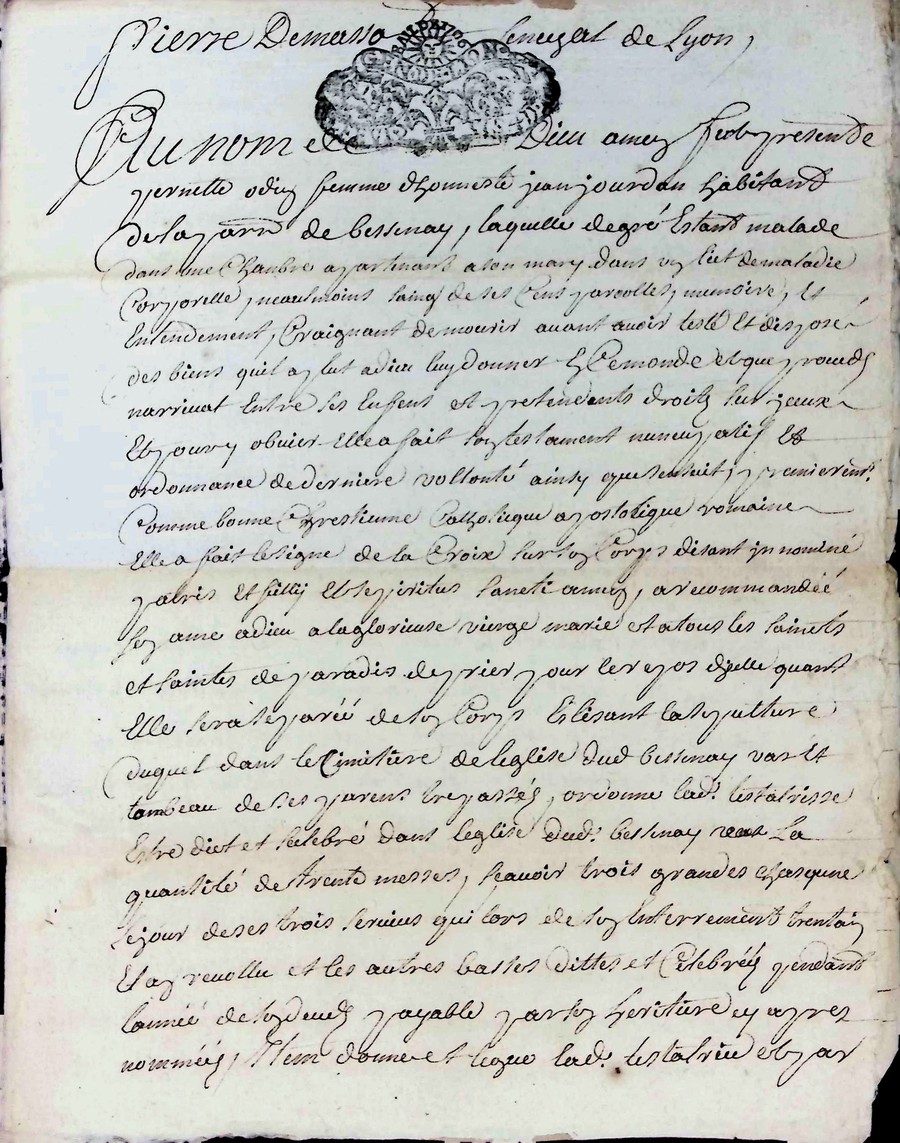 Pierre Demasso Senechal de Lyon,
GNON LION
Au nom de Dieu amen fut presente
pernette odin femme dhonneste jean jourdan habitant
de la parr. de bessenay, laquelle de gré Estant malade
dans une Chanbre apartenant a son mary dans un lict de maladie
Corporelle, neaulmoins saine de ses Cens parolles, memoire, Et
Entendement, Craignant de mourir avant avoir testé Et disposé
des biens quil a plut a dieu luy donner En Ce monde et que proces
narrivat Entre ses Enfens et pretendents droits sur jceux
Et pour y obvier Elle a fait son testament nuncupatif Et
ordonnance de derniere vollonté ainsy que sensuit, premierent.
Comme bonne Chrestienne Catholicque apostolique romaine
Elle a fait le signe de la Croix sur son Corps disant jn nominé
patris Et fillij Et sepiritus sancti amen, a recommandéé
son ame a dieu a la glorieuse vierge marie et a tous les saincts
et saintes de paradis de prier pour le repos dicelle quant
Elle sera separéé de son Corps Eslisant la sepulture
duquel dans le Cimitiere de leglise dud bessenay Et
tombeau de ses parens trepassés, ordonne lad. testatrisse
Estre dict et selebré dans leglise dud. bessenay La
quantité de trente messes, scavoir trois grandes chasqune
jour de ses trois services qui lors de son Enterrement trentain
Et an revollu et les autres basses dittes et Celebréés pendant
lannéé de son deuds payable par son heritiere cy apres
nomméé, Item donne et legue lad. testatrice et par